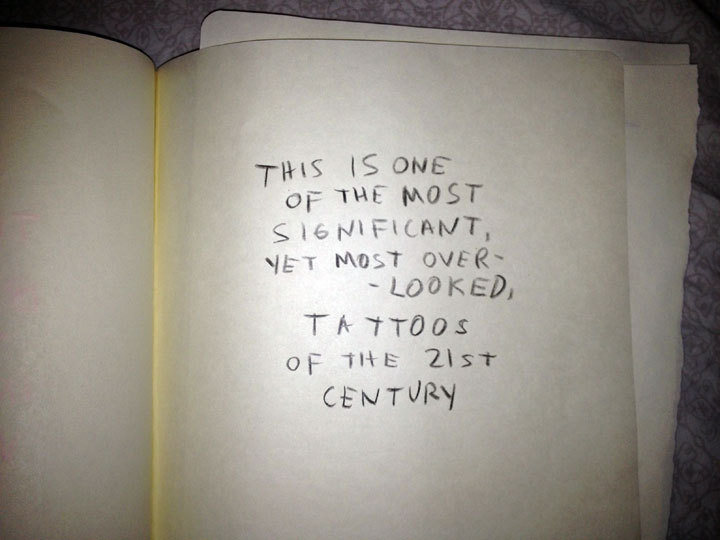 THIS IS ONE
OF THE MOST
SIGNIFICANT,
YET MOST OVER-
- LOOKED,
TATTOOS
OF THE 21ST
CENTURY